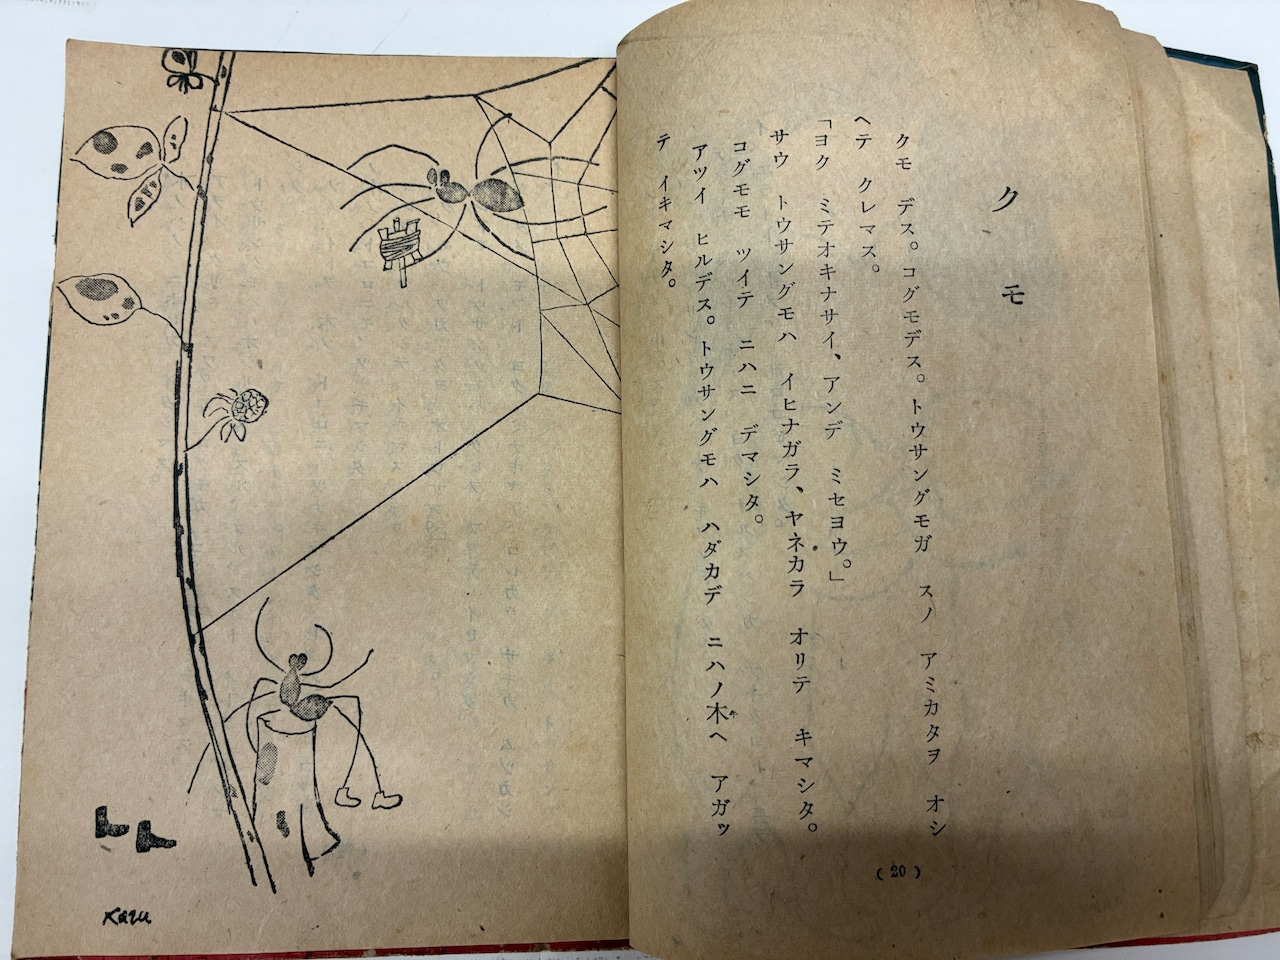 クモ
クモ デス。コグモデス。トウサングモガ スノ アミカタヲ オシ
ヘテ クレマス。
「ヨク ミテオキナサイ、アンデ ミセヨウ。」
サウ トウサングモハ イヒナガラ、ヤネカラ オリテ キマシタ。
コグモモ ツイテ ニハニ デマシタ。
アツイ ヒルデス。トウサングモハ ハダカデ ニハノ木ヘ アガッ
テ イキマシタ。
(20)
Kazu